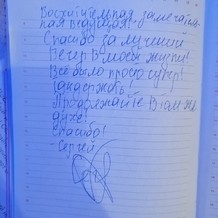 Восхитительная замечатель-
ная ведущая!
Спасибо за лучший
вечер в моей жизни!
Всё было просто супер!
Так держать
Продолжайте в том же
духе!
Спасибо!
- Сергей